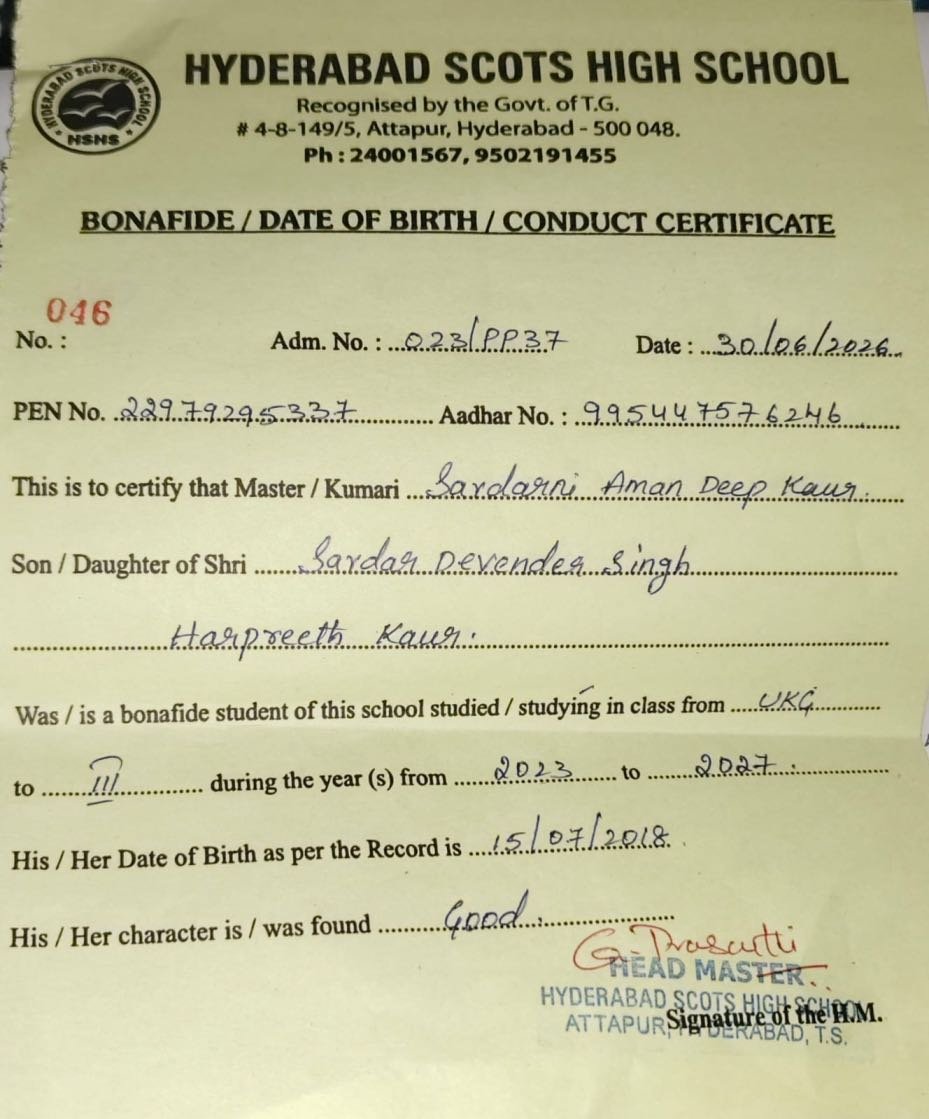 HYDERABAD SCOTS HIGH SCHOOL
HYDERABAD SCOTS HIGH SCHOOL
HSHS
Recognised by the Govt. of T.G.
# 4-8-149/5, Attapur, Hyderabad - 500 048.
Ph : 24001567, 9502191455
BONAFIDE / DATE OF BIRTH / CONDUCT CERTIFICATE
046
No. : Adm. No. : 023/PP37 Date : 30/06/2026
PEN No. 22979295337 Aadhar No. : 995447576246
This is to certify that Master / Kumari Sardarni Aman Deep Kaur.
Son / Daughter of Shri Sardar Devender Singh
Harpreeth Kaur.
Was / is a bonafide student of this school studied / studying in class from UKG
to III during the year (s) from 2023 to 2027.
His / Her Date of Birth as per the Record is 15/07/2018.
His / Her character is / was found Good.
G. Prasutti
HEAD MASTER
HYDERABAD SCOTS HIGH SCHOOL
ATTAPUR, HYDERABAD, T.S.
Signature of the H.M.